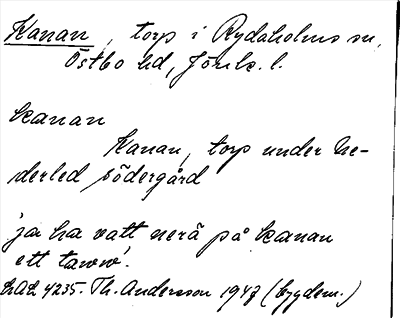 Kanan, torp i Rydaholms sn,
Östbo hd, Jönk. l.
kanan
Kanan, torp under Ne-
derled södergård
'ja ha vatt nerä på kanan
ett tavvv'.
LAL 4235. Th. Andersson 1947 (bygdem.)